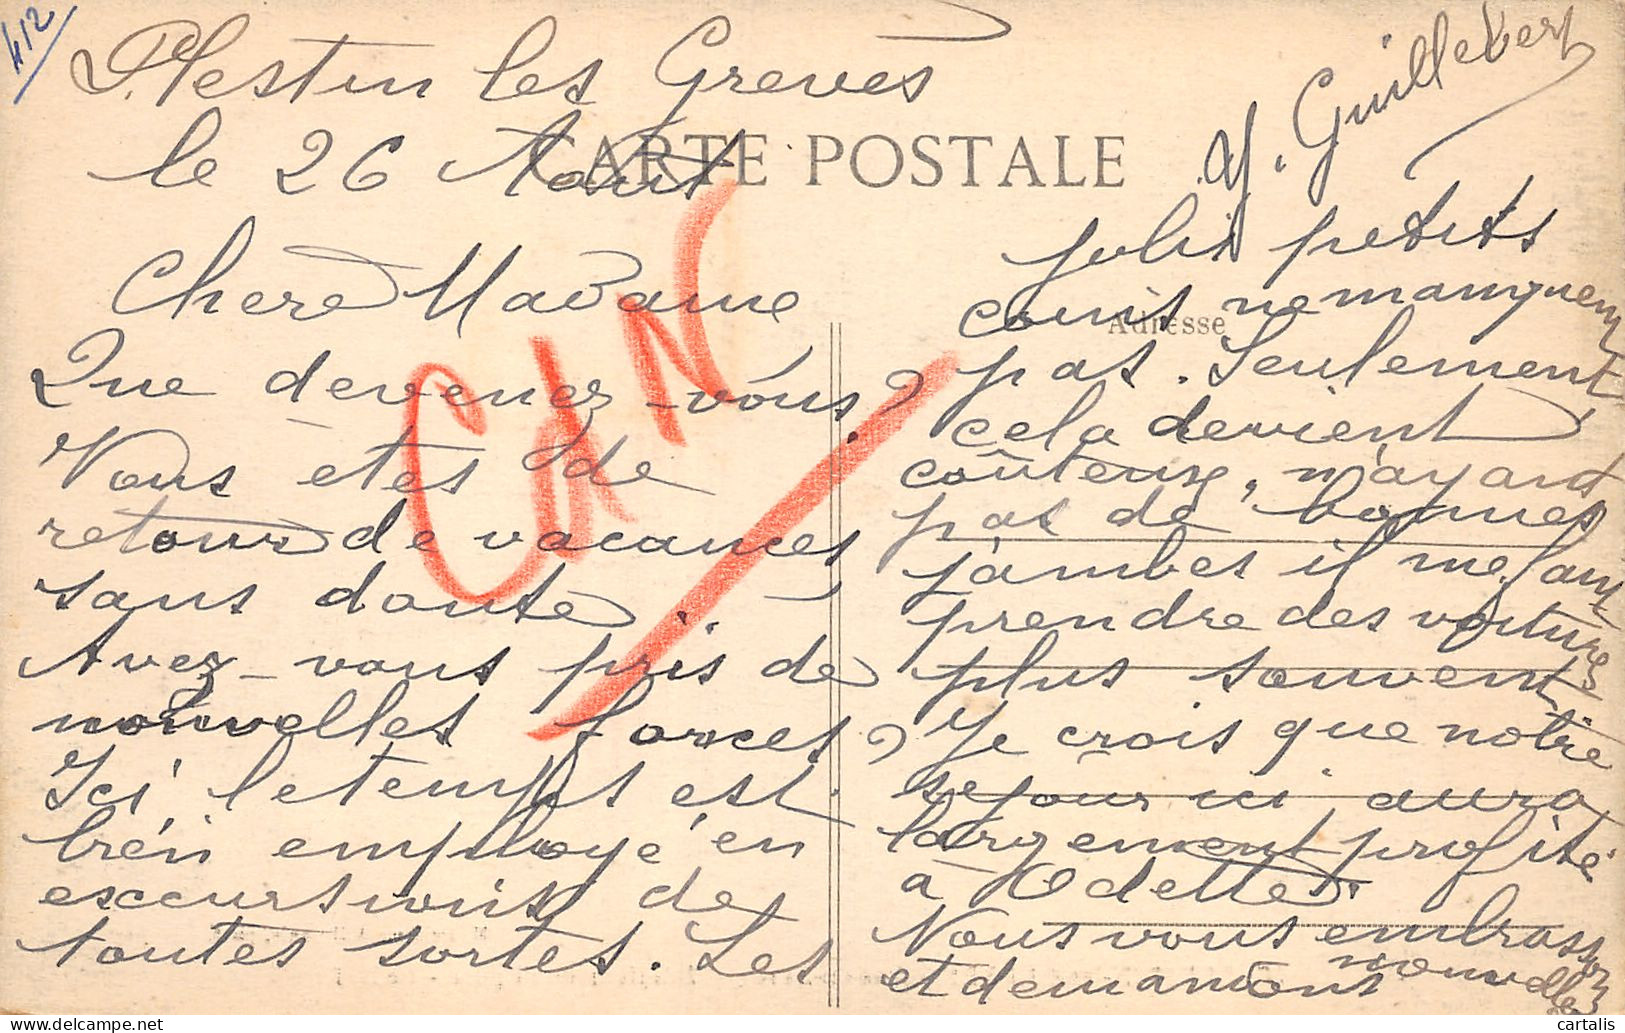 412
Plestin les Greves
le 26 Août
CARTE POSTALE
Chere Madame
Que devenez-vous?
Vous etes de
retour de vacances
sans doute.
Avez-vous pris de
nouvelles forces?
Ici le temps est
bien employé en
excursions de
toutes sortes. Les
Adresse
jolis petits
coins ne manquent
pas. Seulement
cela devient
coûteux, n'ayant
pas de bonnes
jambes il me faut
prendre des voitures
plus souvent
Je crois que notre
séjour ici aura
largement profité
à Odette.
Nous vous embrassons
et demandons nouvelles
M. Guillevert
CIN
www.delcampe.net
cartalis